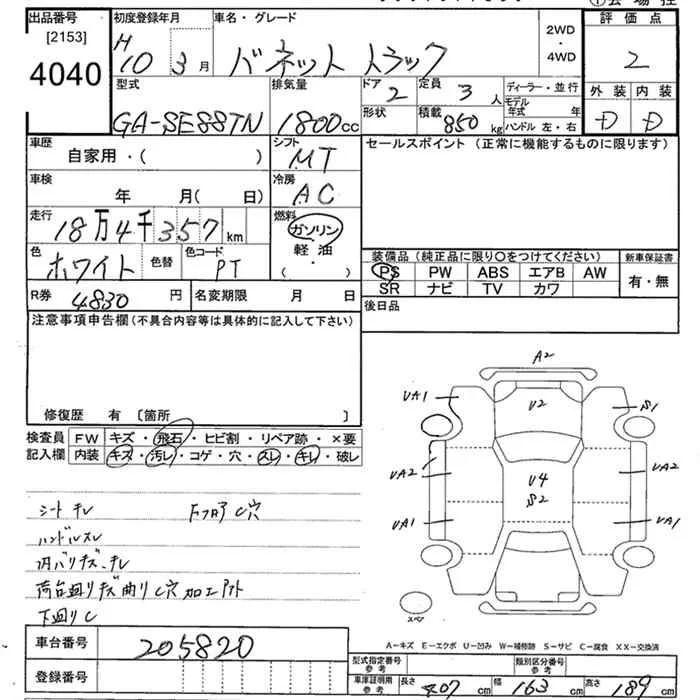 出品番号 [2153] 4040
初度登録年月 H 10 3月
車名・グレード バネット トラック
2WD・4WD
評価点 2
外装 D 内装 D
型式 GA-SE88TN
排気量 1800cc
ドア 2 形状
定員 3人
積載 850kg
ディーラー・並行
モデル年式 年
ハンドル 左・右
車歴 自家用・( )
シフト MT
セールスポイント (正常に機能するものに限ります)
車検 年 月( 日)
冷房 AC
走行 18万4千357km
燃料 ガソリン 軽油 ( ・ )
色 ホワイト 色替 色コード PT
装備品 (純正品に限り○をつけてください) 新車保証書
PS PW ABS エアB AW 有・無
SR ナビ TV カワ
R券 4830円 名変期限 月 日
後日品
注意事項申告欄 (不具合内容等は具体的に記入して下さい)
修復歴 有 [箇所 ]
検査員記入欄 FW キズ・飛石・ヒビ割・リペア跡・×要
内装 キズ・汚レ・コゲ・穴・スレ・キレ・破レ
シートキレ F フロア C穴
ハンドルスレ
内バリキズ、キレ
荷台廻りキズ曲り C穴 加工アト
下廻りC
A2
UA1 U2 S1
UA2 U4 UA2
S2
UA1 UA1
スペア
A-キズ E-エクボ U-凹み W-補修跡 S-サビ C-腐食 XX-交換済
車台番号 205820
型式指定番号 参考 類別区分番号 参考
登録番号
車庫証明用 参考 長さ 407cm 幅 163cm 高さ 189cm